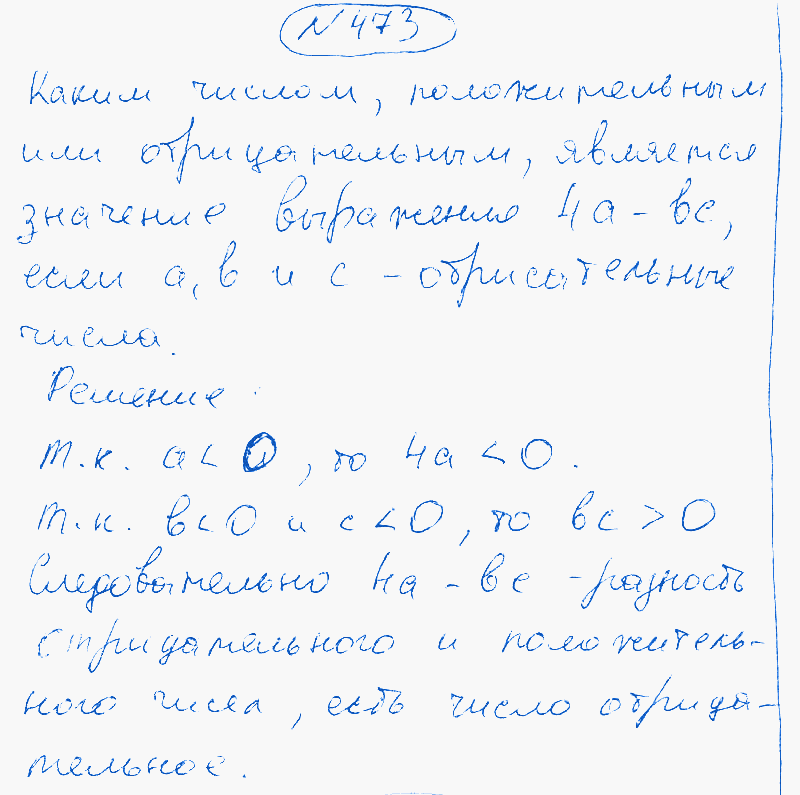 N 473
Каким числом, положительным
или отрицательным, является
значение выражения 4а - вс,
если а, в и с - отрисательные
числа.
Решение
т.к. а < 0, то 4а < 0.
т.к. в < 0 и с < 0, то вс > 0
Следовательно 4а - вс - разность
отрицательного и положитель-
ного чисел, есть число отрица-
тельное.